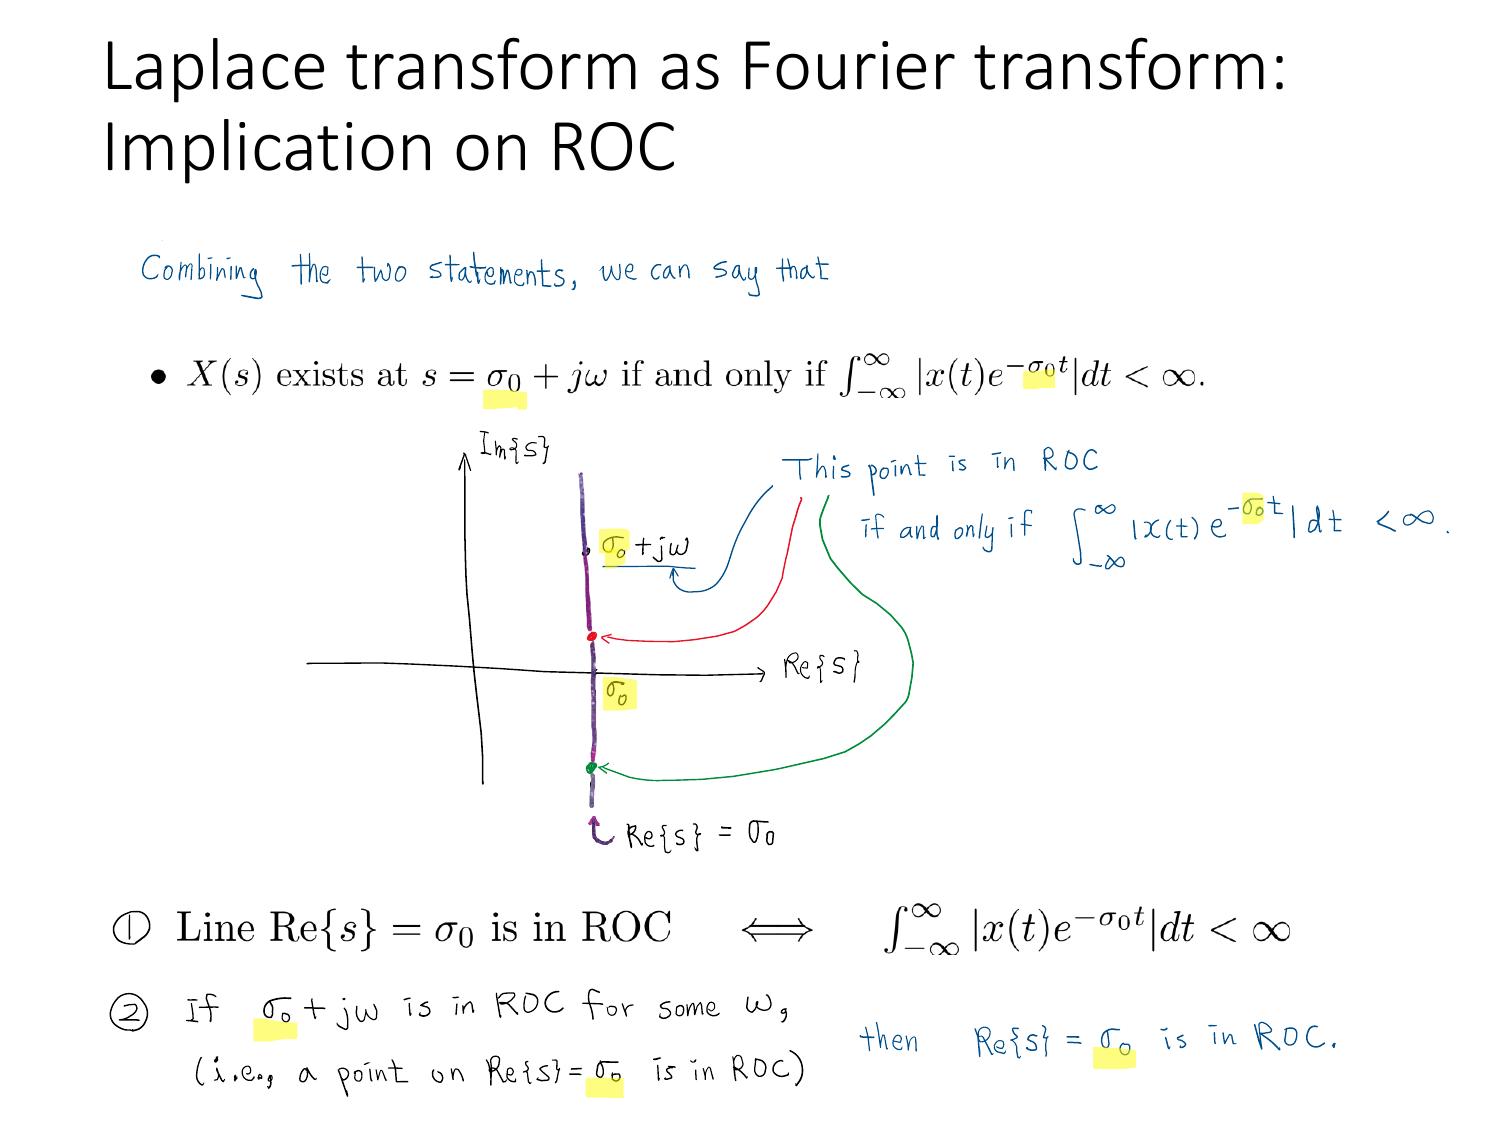 Laplace transform as Fourier transform:
Implication on ROC
Combining the two statements, we can say that
• X(s) exists at s = σ₀ + jω if and only if ∫_{-∞}^{∞} |x(t)e^{-σ₀t}|dt < ∞.
Im{s}
This point is in ROC
if and only if ∫_{-∞}^{∞} |x(t) e^{-σ₀t}| dt < ∞.
σ₀ + jω
Re{s}
σ₀
Re{s} = σ₀
① Line Re{s} = σ₀ is in ROC ⟺ ∫_{-∞}^{∞} |x(t)e^{-σ₀t}|dt < ∞
② If σ₀ + jω is in ROC for some ω,
(i.e., a point on Re{s} = σ₀ is in ROC)
then Re{s} = σ₀ is in ROC.